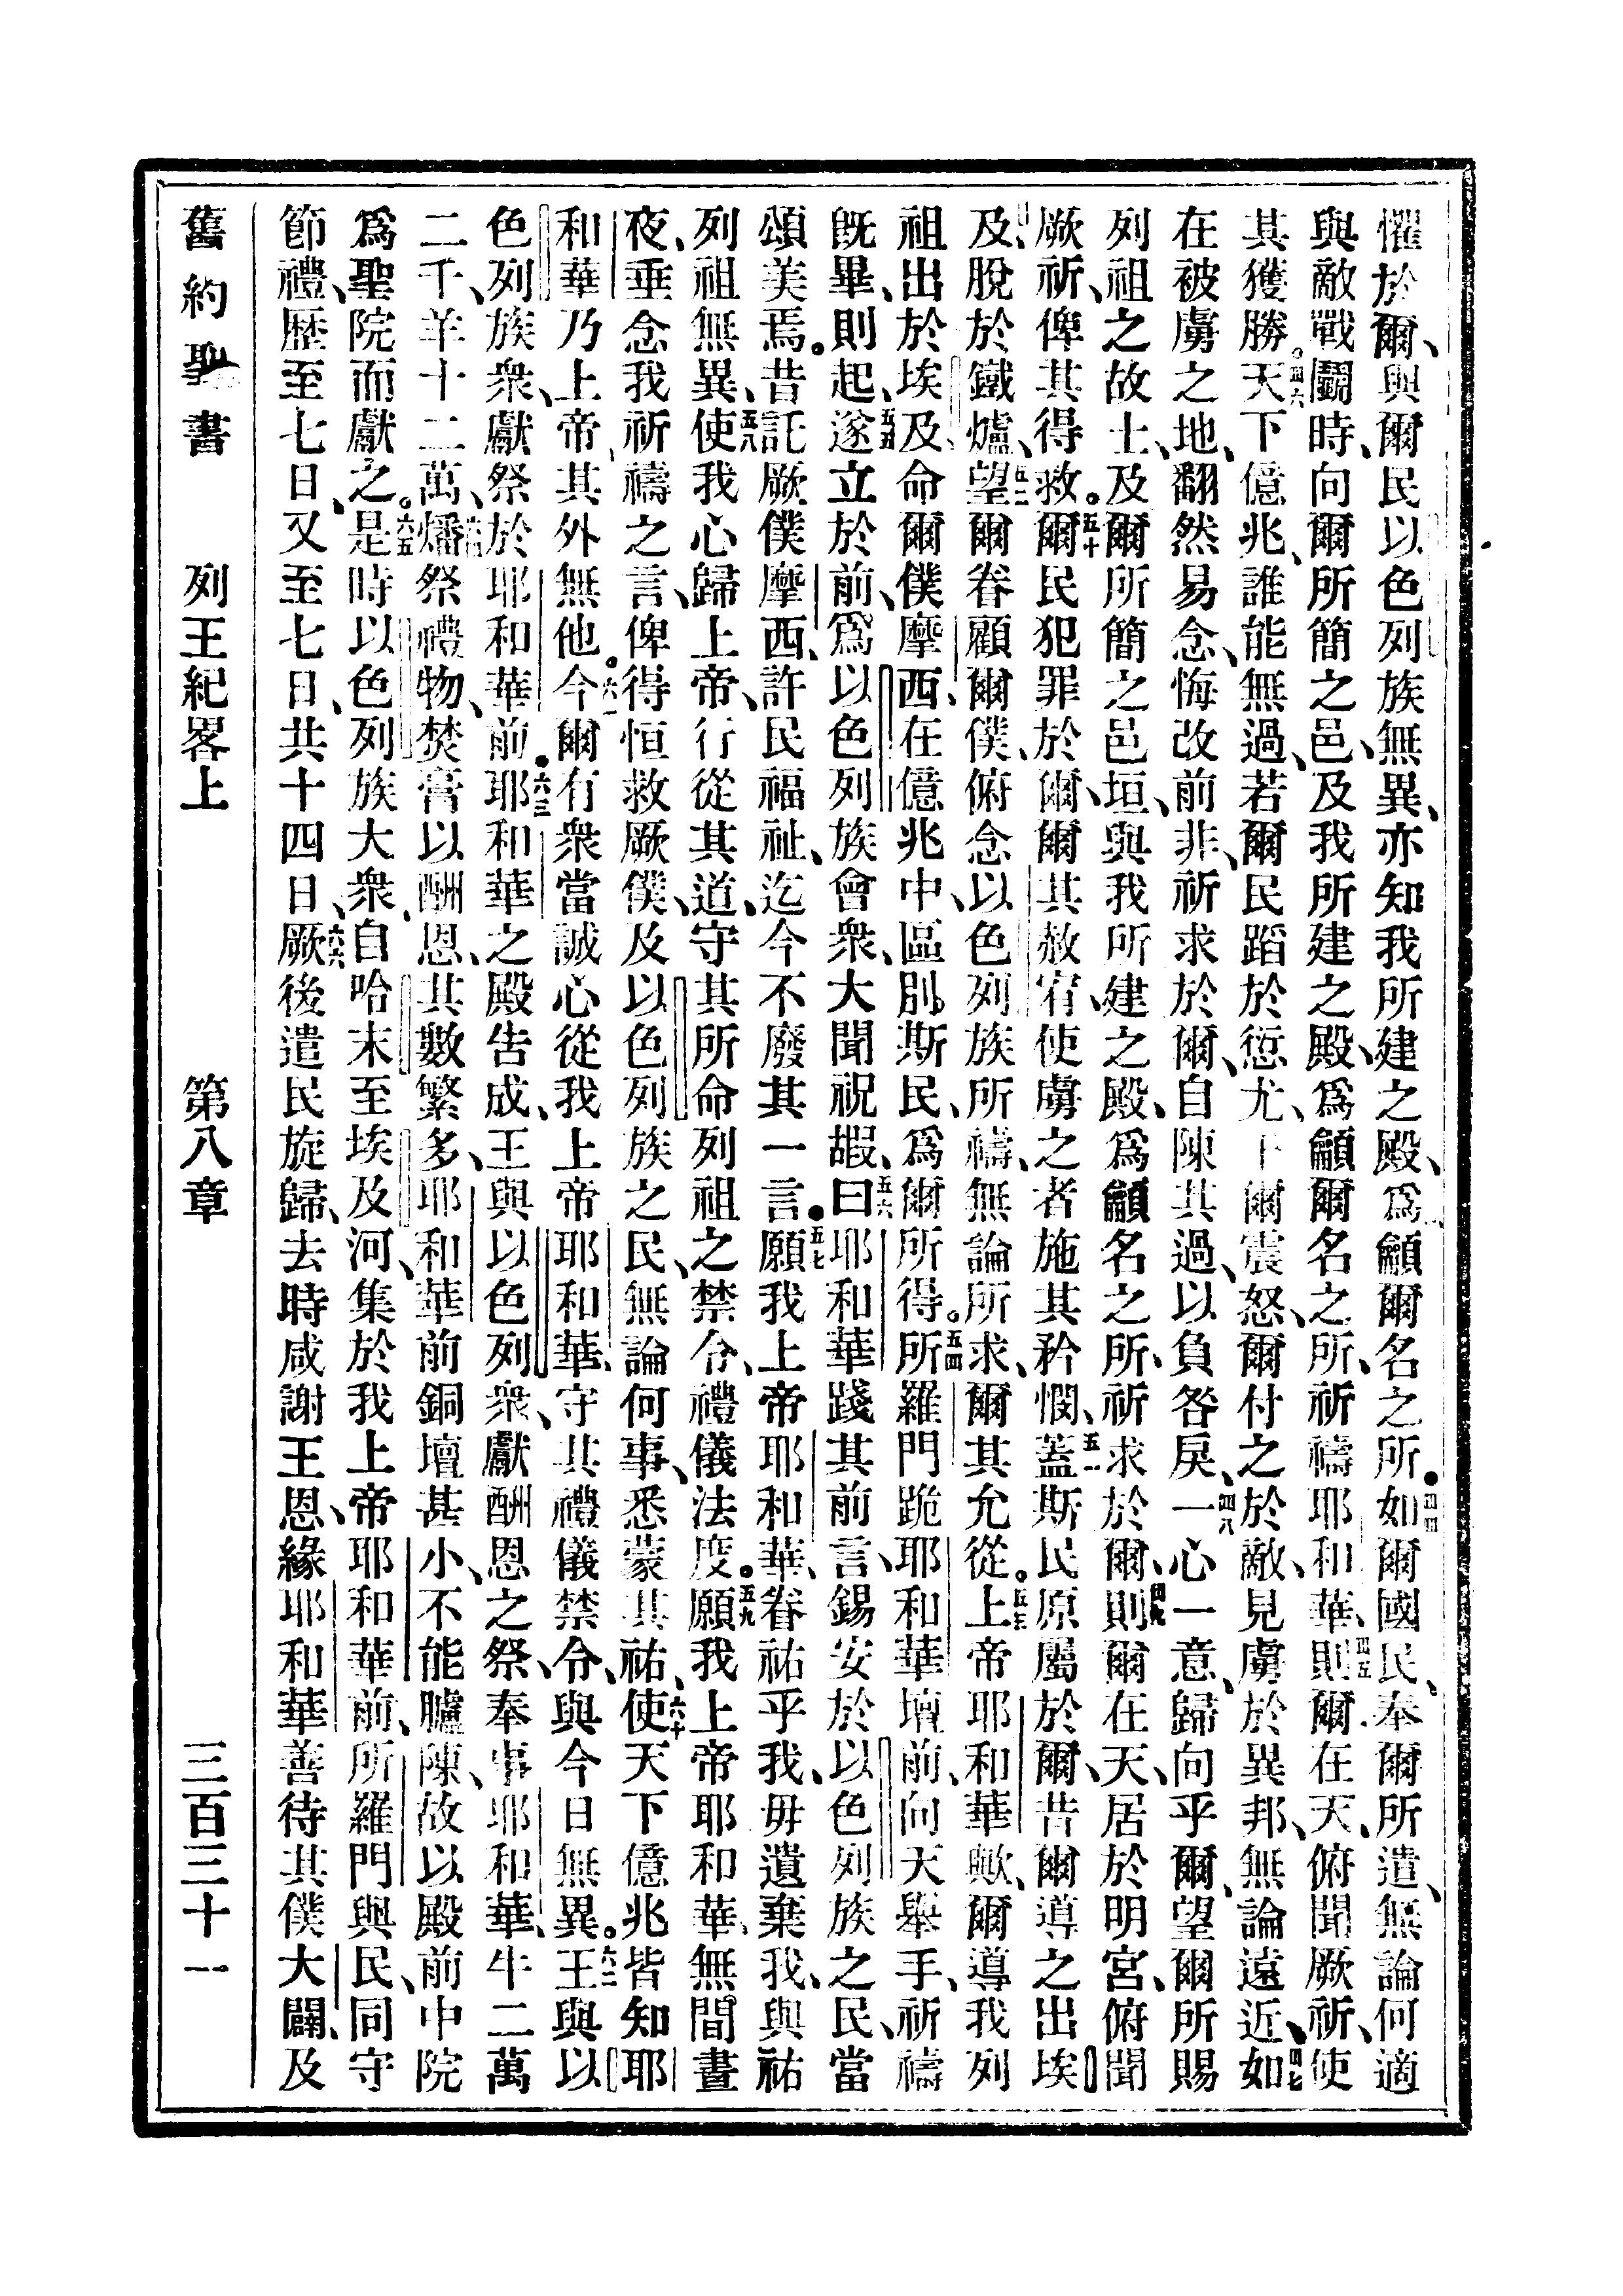 懼於爾、與爾民以色列族無異、亦知我所建之殿、爲龥爾名之所。四四如爾國民、奉爾所遣、無論何適
與敵戰鬬時、向爾所簡之邑、及我所建之殿、爲龥爾名之所、祈禱耶和華、四五則爾在天、俯聞厥祈、使
其獲勝。四六天下億兆、誰能無過、若爾民蹈於愆尤、干爾震怒、爾付之於敵、見虜於異邦、無論遠近、四七如
在被虜之地、翻然易念、悔改前非、祈求於爾、自陳其過、以負咎戾、四八一心一意、歸向乎爾、望爾所賜
列祖之故土、及爾所簡之邑垣、與我所建之殿、爲龥名之所、祈求於爾、四九則爾在天、居於明宮、俯聞
厥祈、俾其得救。五十爾民犯罪於爾、爾其赦宥、使虜之者施其矜憫、五一蓋斯民原屬於爾、昔爾導之出埃
及、脫於鐵爐、五二望爾眷顧爾僕、俯念以色列族所禱、無論所求、爾其允從。五三上帝耶和華歟、爾導我列
祖出於埃及、命爾僕摩西、在億兆中、區別斯民、爲爾所得。五四所羅門跪耶和華壇前、向天舉手、祈禱
旣畢、則起、五五遂立於前、爲以色列族會衆、大聞祝嘏、五六曰耶和華踐其前言、錫安於以色列族之民、當
頌美焉。昔託厥僕摩西、許民福祉、迄今不廢其一言。五七願我上帝耶和華、眷祐乎我、毋遺棄我、與祐
列祖無異、五八使我心歸上帝、行從其道、守其所命列祖之禁令、禮儀法度。五九願我上帝耶和華、無間晝
夜、垂念我祈禱之言、俾得恒救厥僕、及以色列族之民、無論何事、悉蒙其祐、六十使天下億兆皆知耶
和華乃上帝、其外無他。六一今爾有衆當誠心從我上帝耶和華、守其禮儀禁令、與今日無異。六二王與以
色列族衆、獻祭於耶和華前。六三耶和華之殿告成、王與以色列衆、獻酬恩之祭、奉事耶和華、牛二萬
二千、羊十二萬、六四燔祭禮物、焚膏以酬恩、其數繁多、耶和華前銅壇甚小、不能臚陳、故以殿前中院
爲聖院而獻之。六五是時以色列族大衆、自哈末至埃及河、集於我上帝耶和華前、所羅門與民、同守
節禮、歷至七日、又至七日、共十四日、六六厥後遣民旋歸、去時咸謝王恩、緣耶和華善待其僕大闢、及
舊約聖書　列王紀畧上　第八章　三百三十一